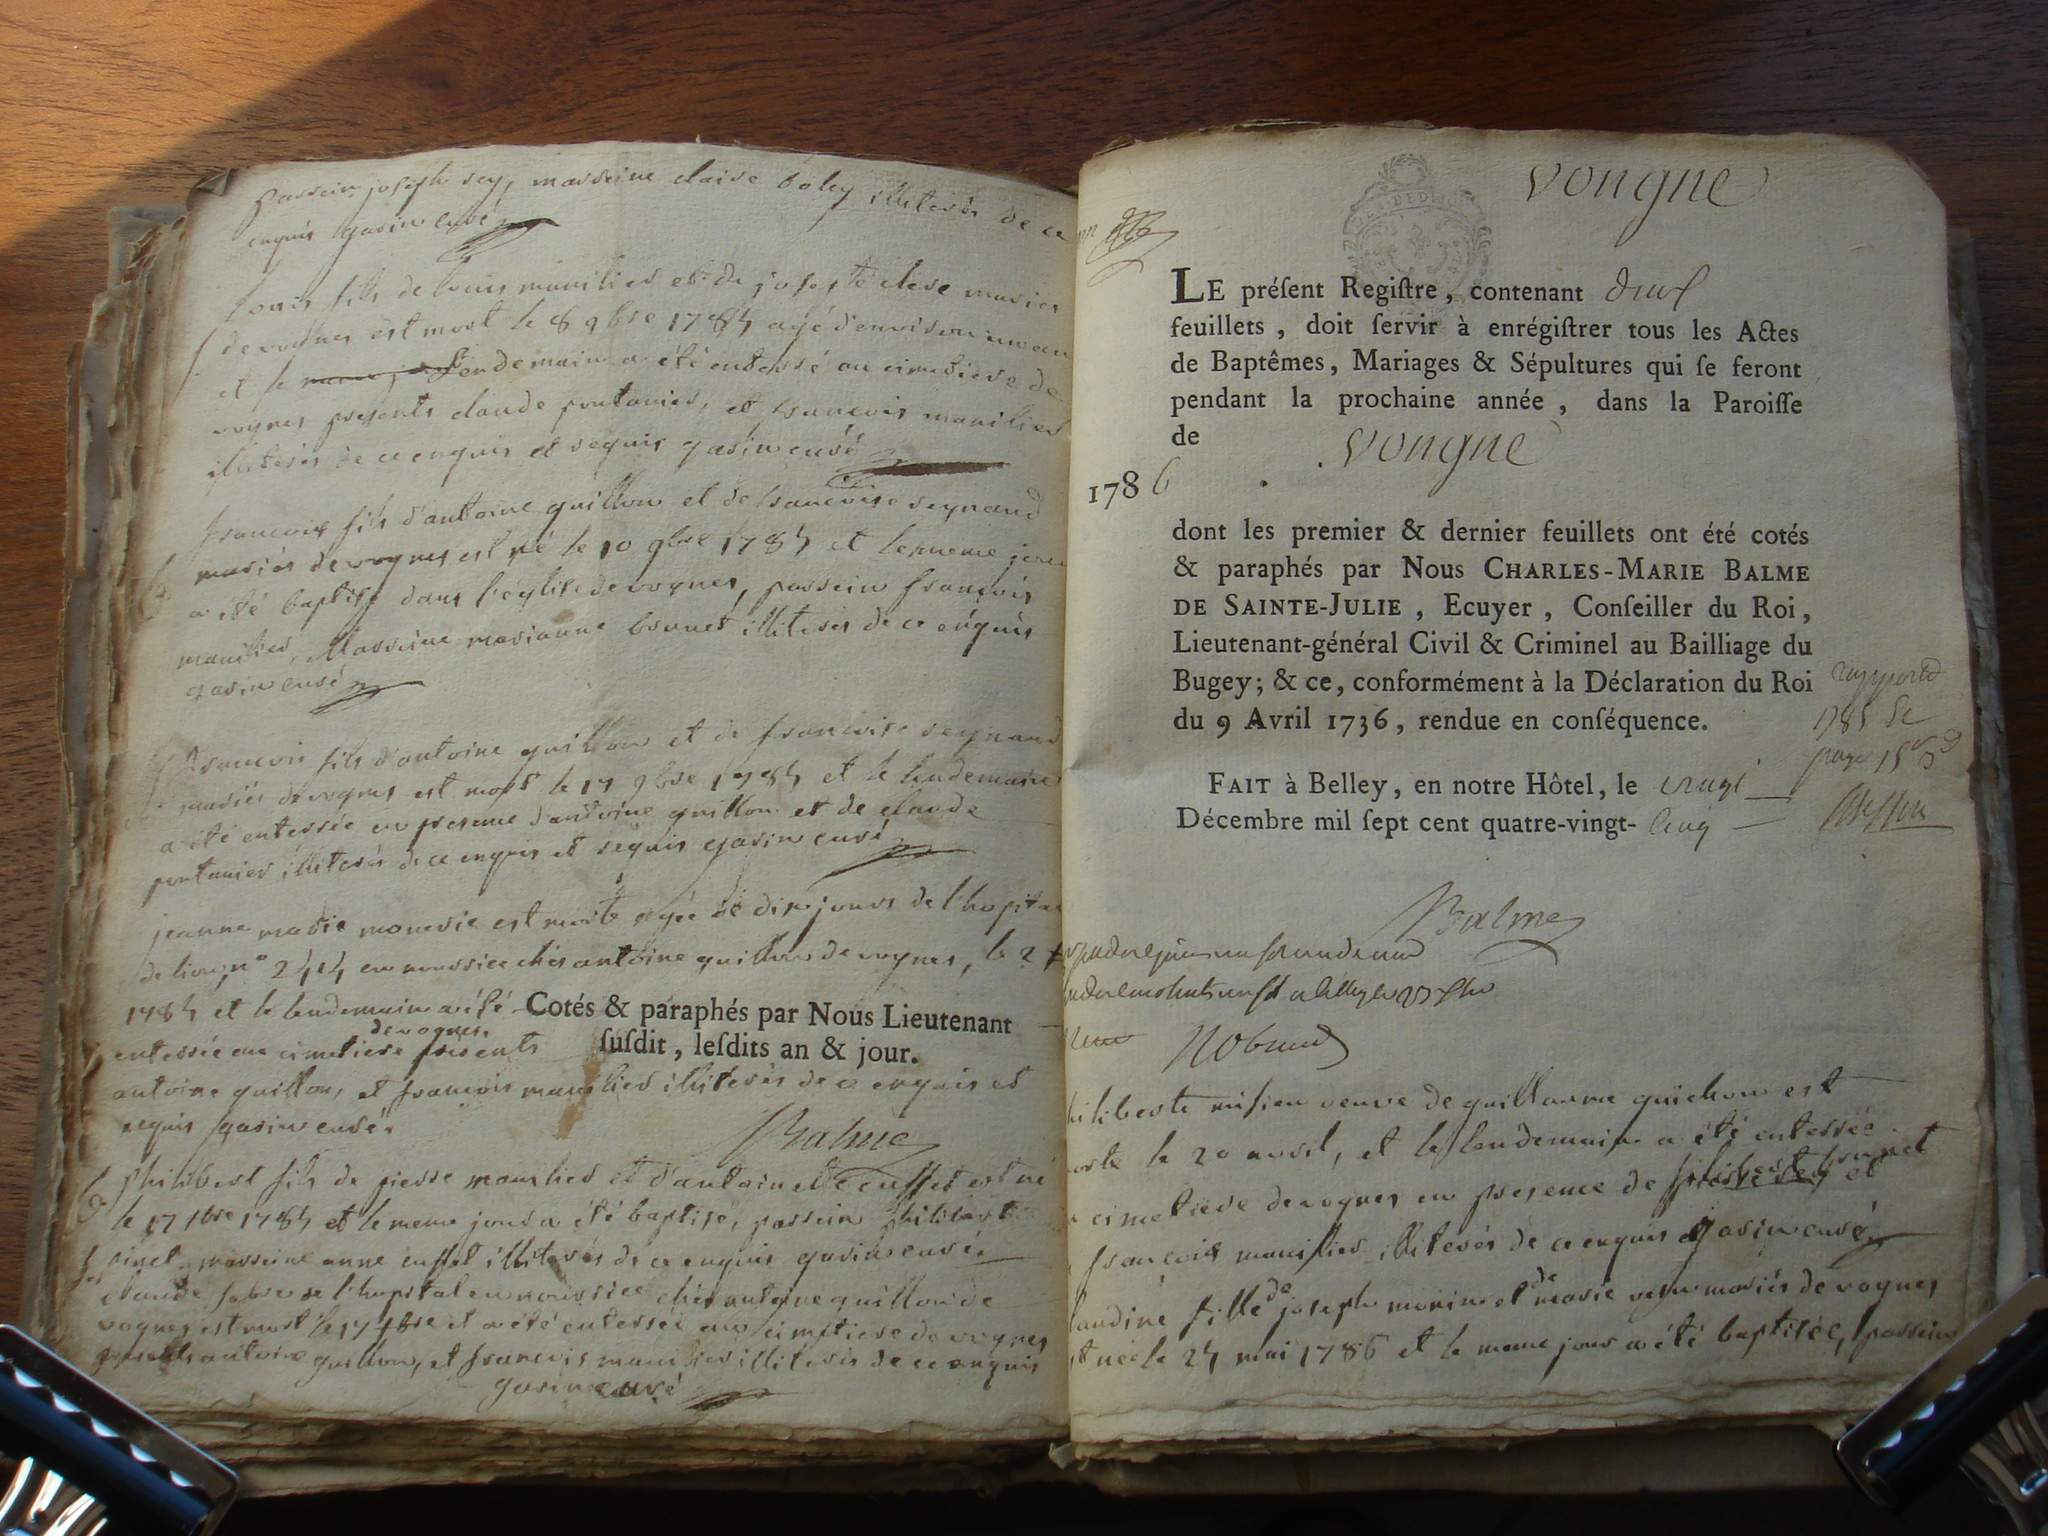 passein joseph sey, masseine claise boley illiterés de ce
enquis gasin curé
louis fils de louis manilier et de josephte clere mariés
de vognes est mort le 8 9bre 1785 agé d'environ un an
et le lendemain a été entessé au cimetiere de
vognes presents claude pontanier, et francois manilier
illiterés de ce enquis et requis gasin curé
francois fils d'antoine guillon et de francoise reynaud
mariés de vognes est né le 10 9bre 1785 et le meme jour
a été baptisé dans l'église de vognes, passein francois
manilier, Masseine marianne brunet illiterés de ce enquis
gasin curé
francois fils d'antoine guillon et de francoise reynaud
mariés de vognes est mort le 17 9bre 1785 et le lendemain
a été entessée en presence d'antoine guillon et de claude
pontanier illiterés de ce enquis et requis gasin curé
jeanne marie est morte agée de dix jours de l'hopital
de lion, n° 2414 en nourrice chés antoine guillon de vognes, le 2
1785 et le lendemain a été
de vognes
entessée au cimetiere présents
antoine guillon, et francois manilier illiterés de ce enquis et
requis gasin curé.
Cotés & paraphés par Nous Lieutenant
ſuſdit, leſdits an & jour.
Balme
philibert fils de piesse manilier et d'antoinette cusset est né
le 17 1785 et le meme jour a été baptisé, passein philibert
masseine anne cusset illiterés de ce enquis gasin curé.
claude de l'hopital en nourrice chés antoine guillon de
vognes est mort le et a été entessé au cimetiere de vognes
presents antoine guillon, et francois manilier illiterés de ce enquis
gasin curé
vongne
LE préſent Regiſtre, contenant deux
feuillets, doit ſervir à enrégiſtrer tous les Actes
de Baptêmes, Mariages & Sépultures qui ſe feront
pendant la prochaine année, dans la Paroiſſe
de vongne
1786
dont les premier & dernier feuillets ont été cotés
& paraphés par Nous CHARLES-MARIE BALME
DE SAINTE-JULIE, Ecuyer, Conſeiller du Roi,
Lieutenant-général Civil & Criminel au Bailliage du
Bugey; & ce, conformément à la Déclaration du Roi
du 9 Avril 1736, rendue en conſéquence.
rapporté
1785
page 15
FAIT à Belley, en notre Hôtel, le vingt
Décembre mil ſept cent quatre-vingt- cinq
Balme
hiliberte misieu veuve de guillaume guichon est
orte le 20 avril, et le lendemain a été entessée
cimetiere de vognes en presence de brunet et
francois manilier illiterés de ce enquis gasin curé
laudine fille de joseph morin et de marie mariés de vognes
t née le 24 mai 1786 et le meme jour a été baptisée, passein